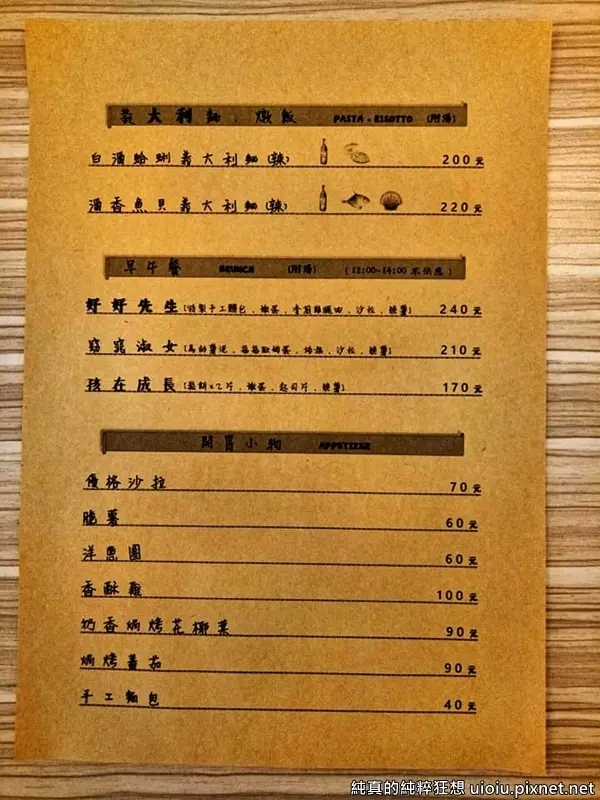 義大利麵、燉飯 PASTA - RISOTTO (附湯)
白酒蛤蜊義大利麵(辣) 200元
酒香魚貝義大利麵(辣) 220元
早午餐 BRUNCH (附湯) (12:00~14:00 不供應)
好好先生(特製手工麵包、嫩蛋、香煎雞腿肉、沙拉、醬) 240元
窈窕淑女(馬鈴薯泥、歐姆蛋、培根、沙拉、醬) 210元
孩在成長(鬆餅x2片、嫩蛋、起司片、醬) 170元
開胃小物 APPETIZER
優格沙拉 70元
脆薯 60元
洋蔥圈 60元
香酥雞 100元
奶香焗烤花椰菜 90元
焗烤蕃茄 90元
手工麵包 40元
純真的純粹狂想 uioiu.pixnet.net